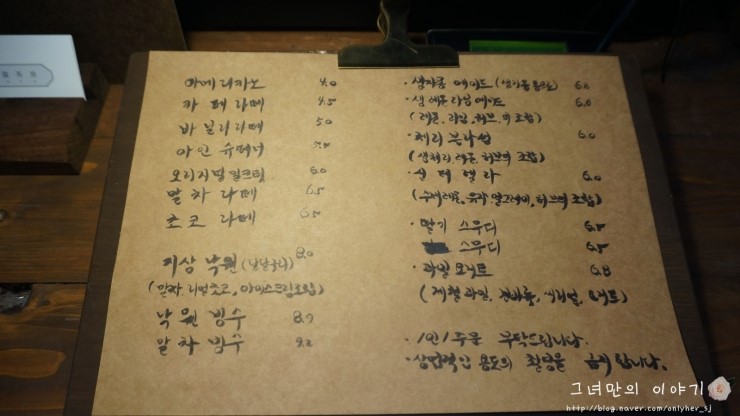 아메리카노 4.0
카페라떼 4.5
바닐라라떼 5.0
아인슈페너
오리지널 밀크티 6.0
말차라떼 6.5
초코라떼 6.5
지상낙원 8.0
(말차, 리얼초코, 아이스크림 조합)
낙원빙수
말차빙수
· 생자몽에이드 6.0
· 생레몬라임에이드 6.0
(레몬, 라임, 허브의 조합)
· 체리 6.0
(생체리, 레몬, 허브의 조합)
6.0
· 딸기 스무디 6.5
스무디 6.5
· 과일 요거트 6.8
(제철과일, 견과류, 시리얼, 요거트)
· 1인 1주문 부탁드립니다.
· 상업적인 용도의 촬영을 금지합니다.
그녀만의 이야기
http://blog.naver.com/onlyher_sj